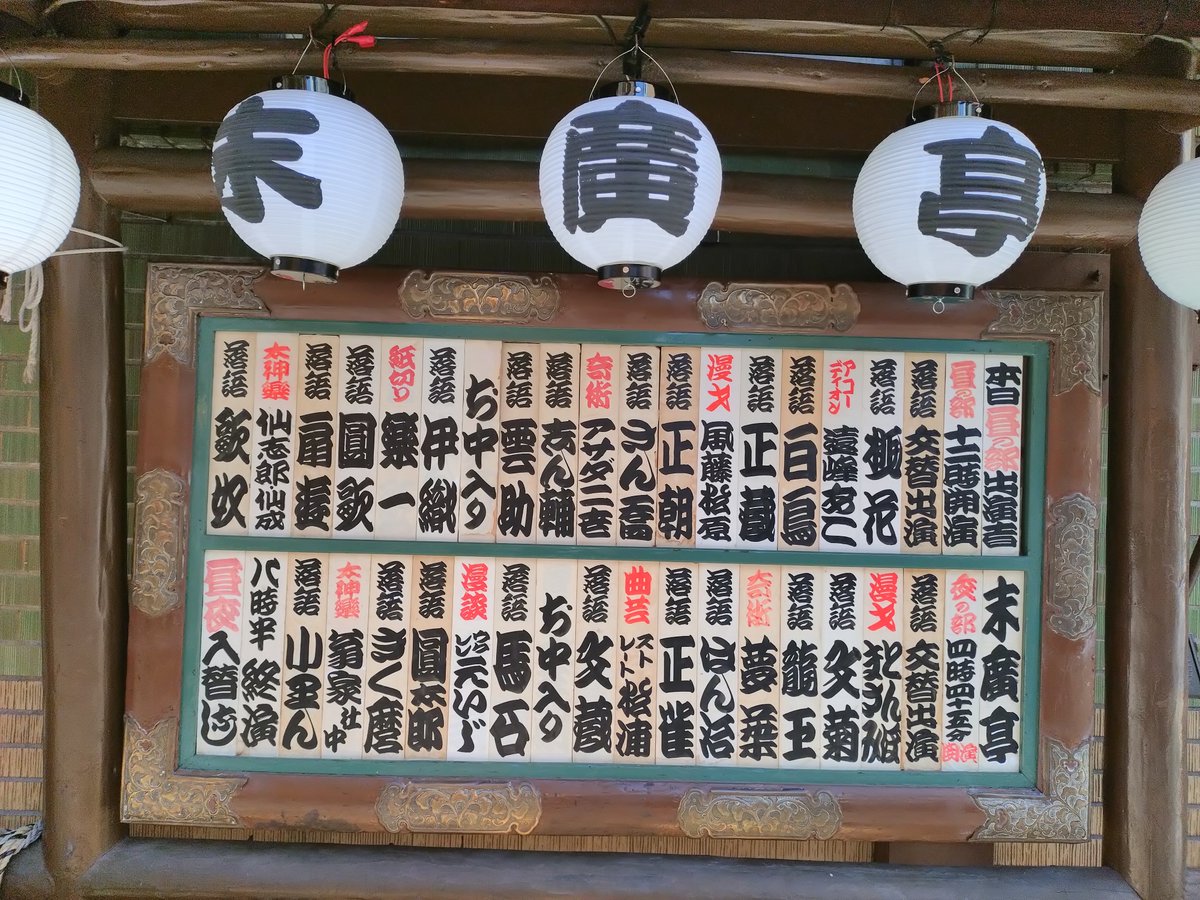 末廣亭
本日昼の部出演者
昼の部 十二時開演
落語 交替出演
落語 桃花
アコーディオン 遠峰あこ
落語 白鳥
落語 正蔵
漫才 風藤松原
落語 正朝
落語 さん喬
奇術 アサダ二世
落語 志ん輔
落語 雲助
お中入り
落語 伊織
紙切り 楽一
落語 圓歌
落語 扇遊
太神楽 仙志郎仙成
落語 歌奴
末廣亭
夜の部 四時四十五分開演
落語 交替出演
漫才
落語 文菊
落語 龍玉
奇術 夢葉
落語 はん治
落語 正雀
曲芸 ストレート松浦
落語 文蔵
お中入り
落語 馬石
漫談 ウクレレえいじ
落語 圓太郎
落語 きく麿
太神楽 翁家社中
落語 小里ん
八時半 終演
昼夜入替なし